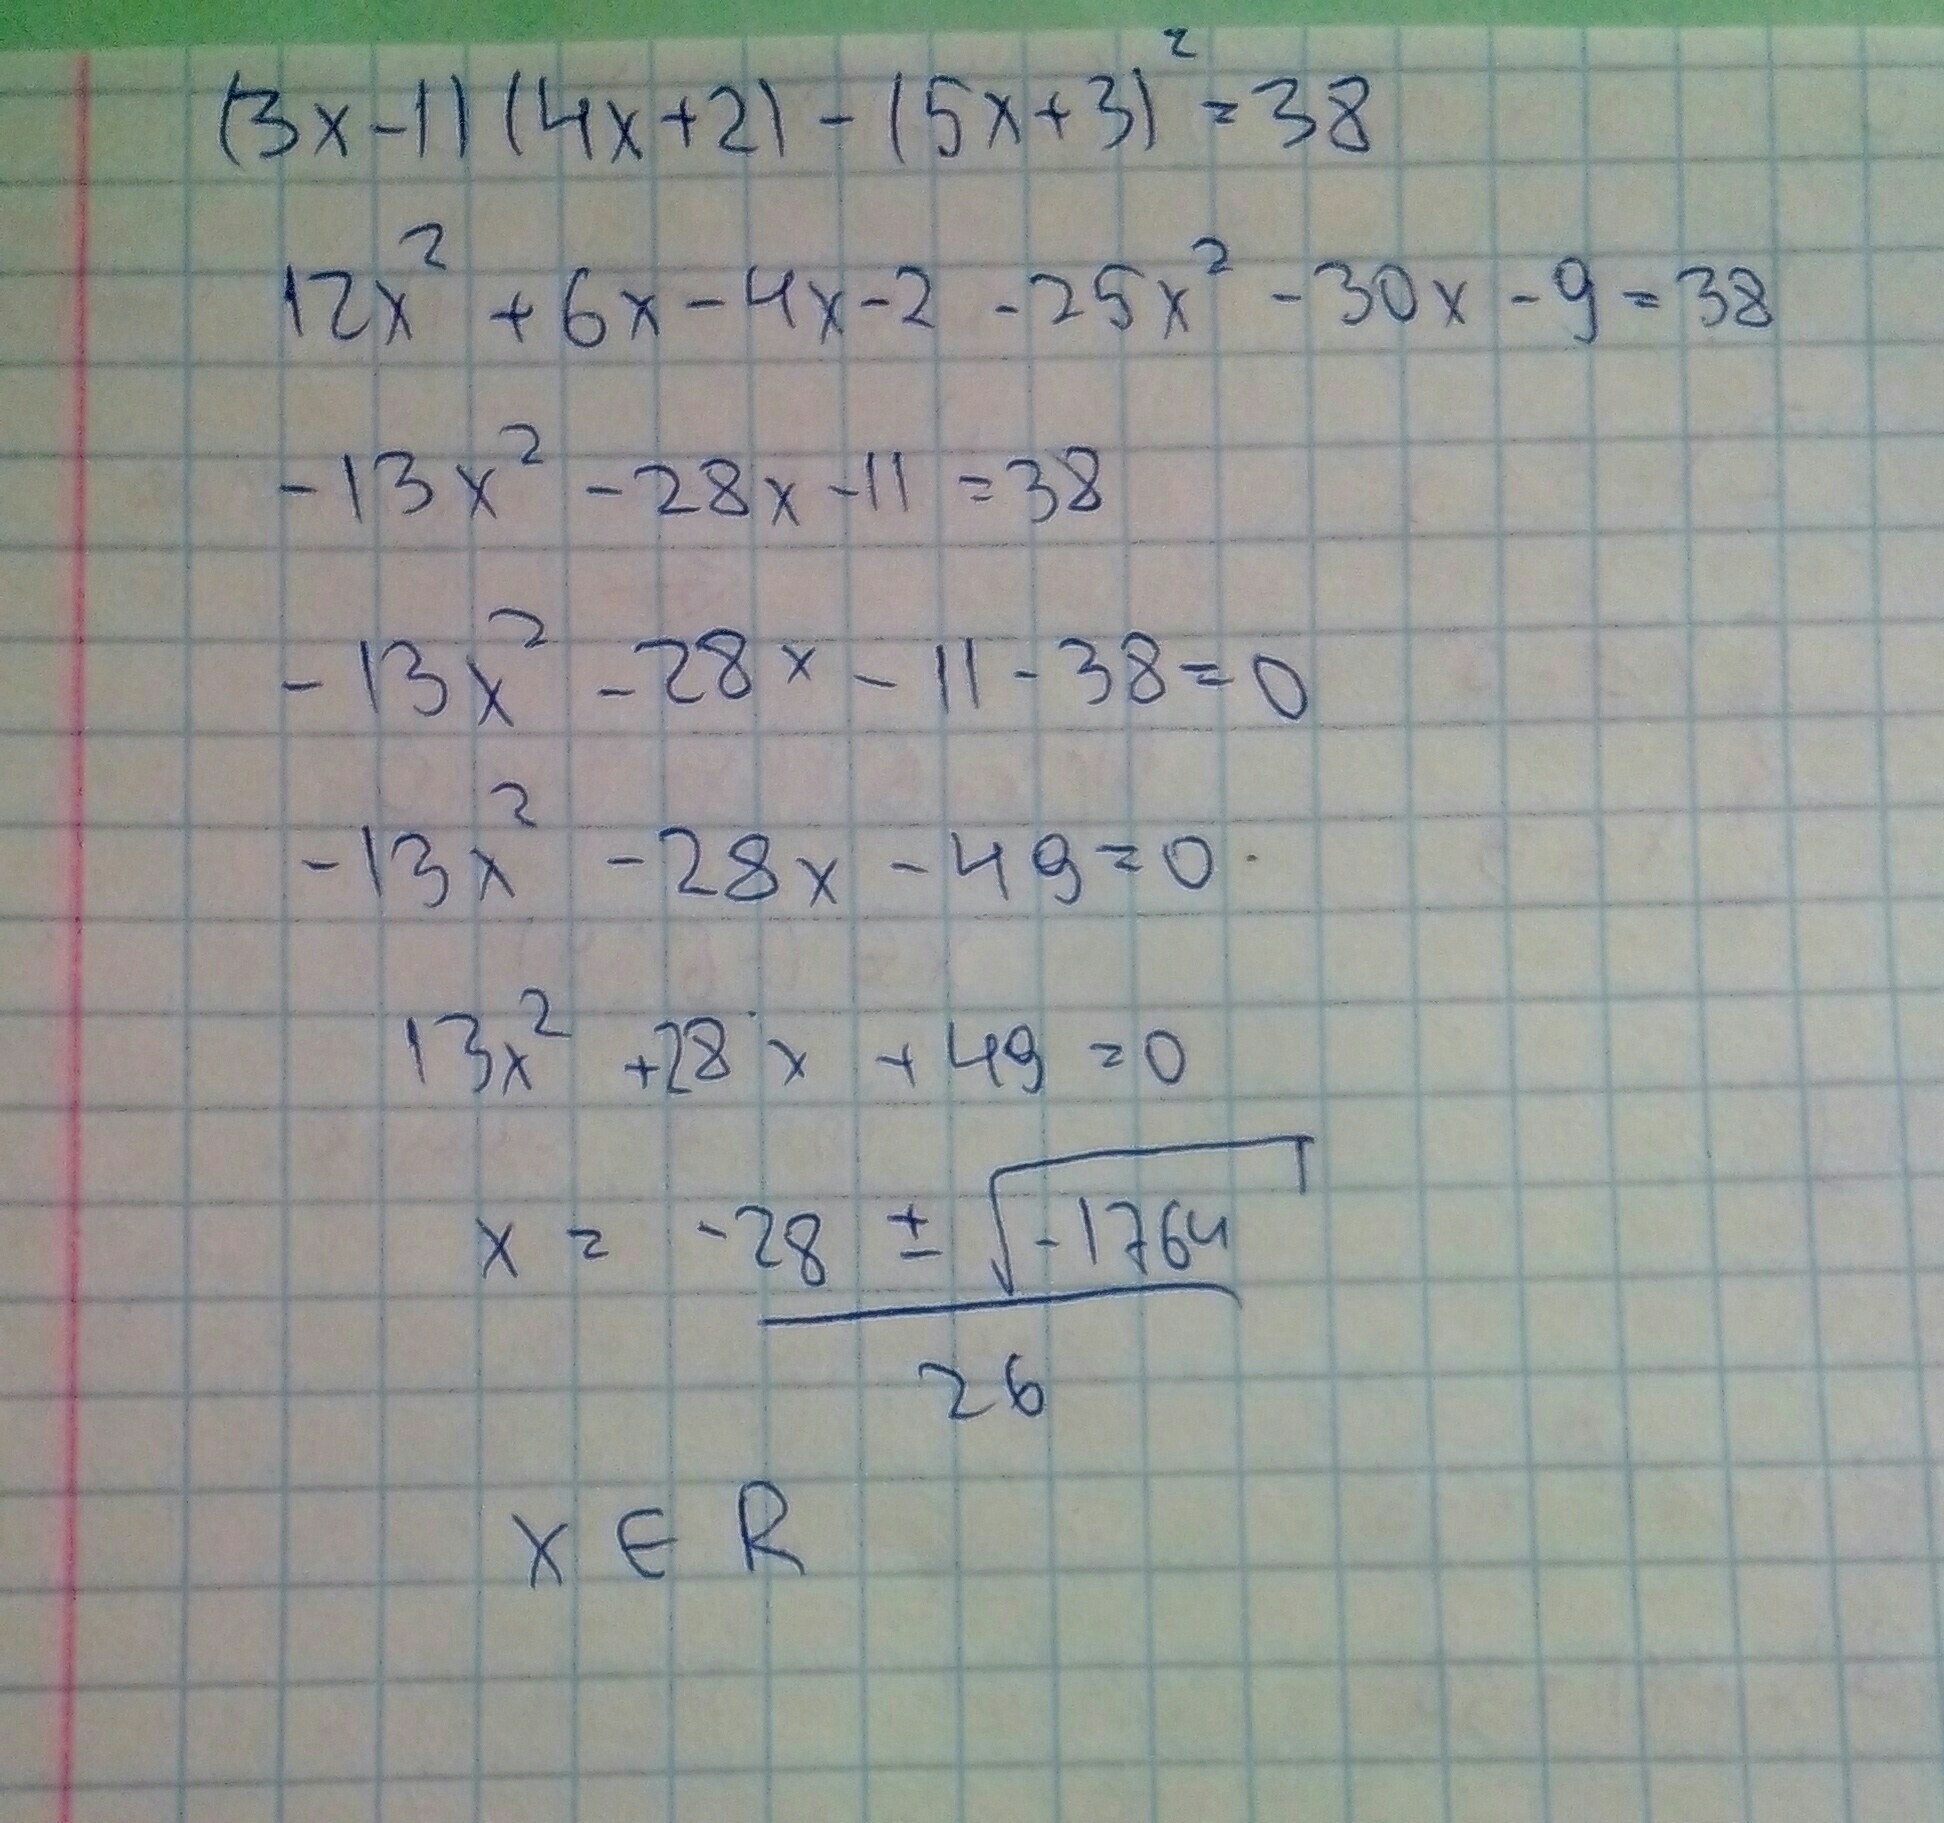 (3x-1)(4x+2)-(5x+3)²=38
12x²+6x-4x-2-25x²-30x-9=38
-13x²-28x-11=38
-13x²-28x-11-38=0
-13x²-28x-49=0
13x²+28x+49=0
x= -28±√-1764
26
x∈R